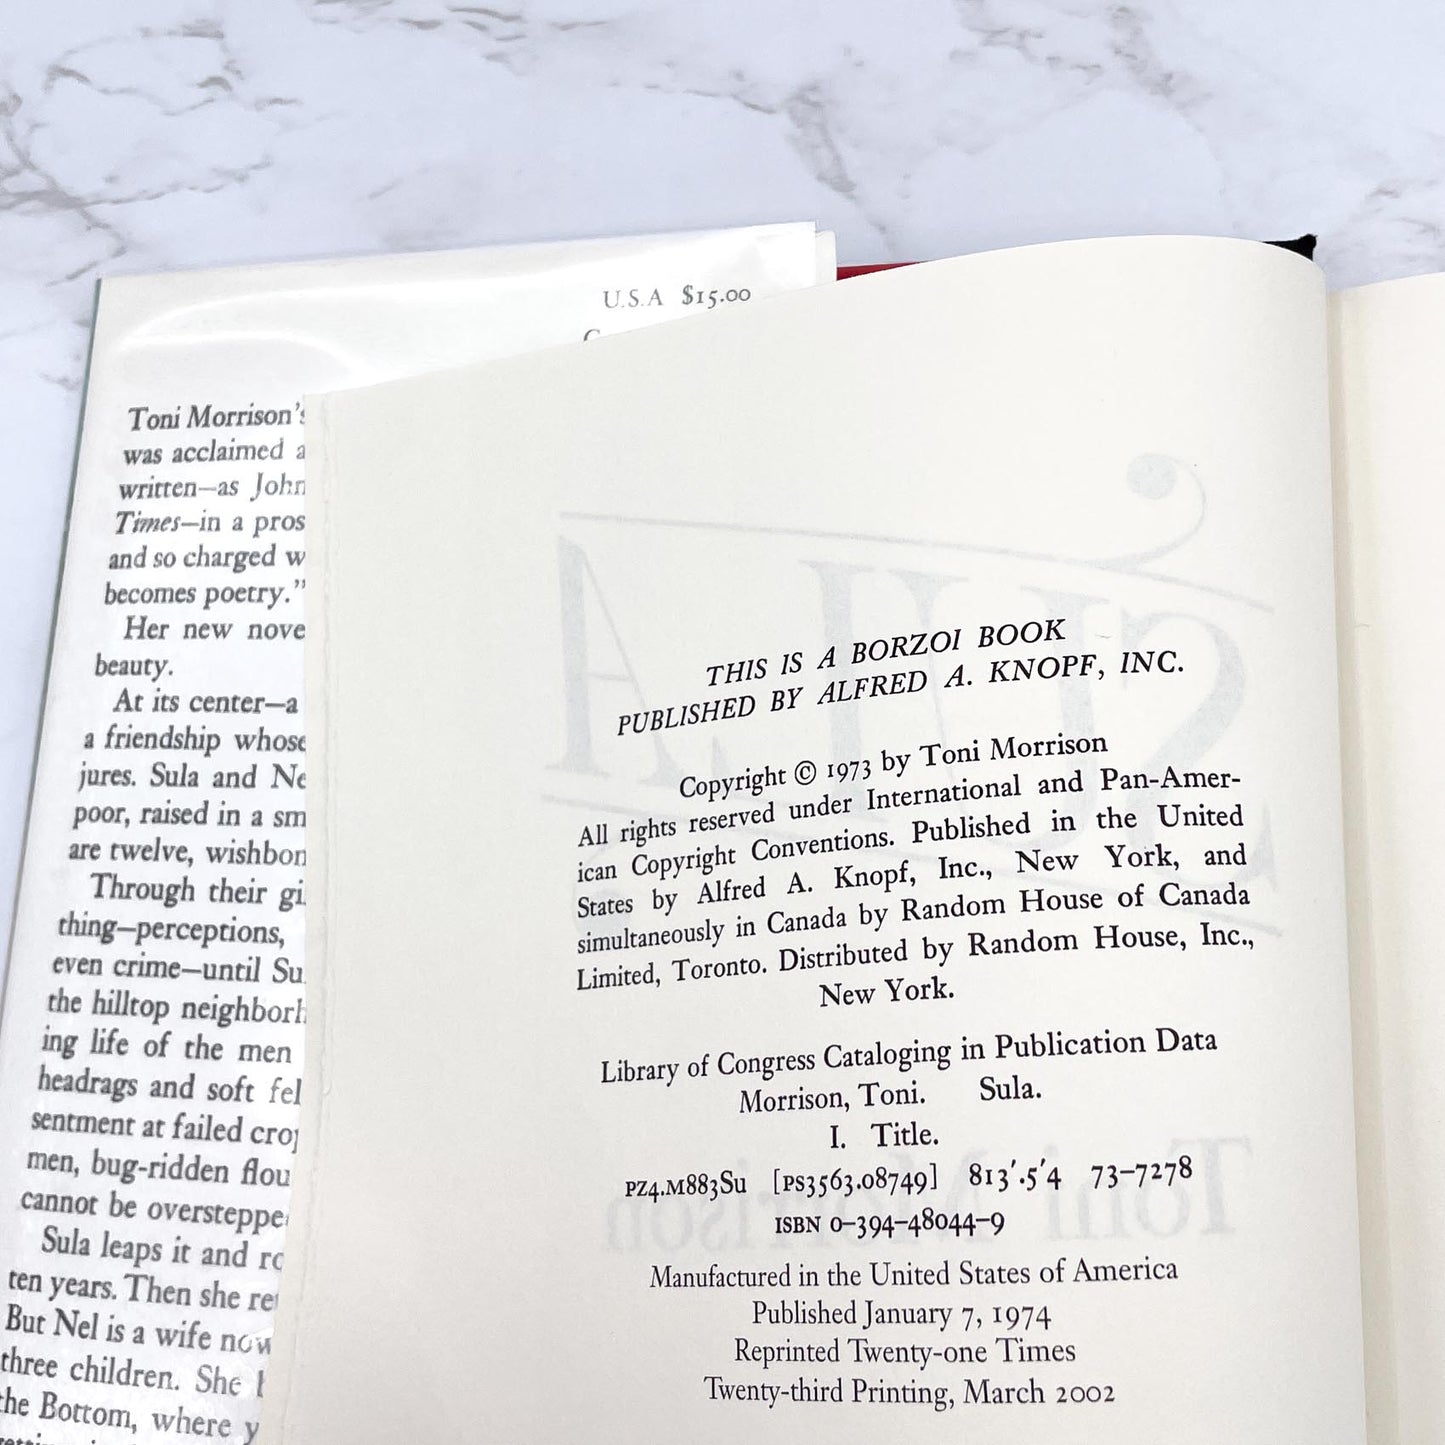 U.S.A $15.00
Toni Morrison's
was acclaimed
written—as John
Times—in a pros
and so charged w
becomes poetry."
Her new nove
beauty.
At its center—a
a friendship whose
jures. Sula and Ne
poor, raised in a sm
are twelve, wishbon
Through their gi
thing—perceptions,
even crime—until Su
the hilltop neighborh
ing life of the men
headrags and soft fel
sentment at failed crop
men, bug-ridden flou
cannot be oversteppe
Sula leaps it and ro
ten years. Then she re
But Nel is a wife now
three children. She
the Bottom, where y
THIS IS A BORZOI BOOK
PUBLISHED BY ALFRED A. KNOPF, INC.
Copyright © 1973 by Toni Morrison
All rights reserved under International and Pan-Amer-
ican Copyright Conventions. Published in the United
States by Alfred A. Knopf, Inc., New York, and
simultaneously in Canada by Random House of Canada
Limited, Toronto. Distributed by Random House, Inc.,
New York.
Library of Congress Cataloging in Publication Data
Morrison, Toni. Sula.
I. Title.
PZ4.M883Su [PS3563.O8749] 813'.5'4 73–7278
ISBN 0–394–48044–9
Manufactured in the United States of America
Published January 7, 1974
Reprinted Twenty-one Times
Twenty-third Printing, March 2002
SULA
Toni Morrison